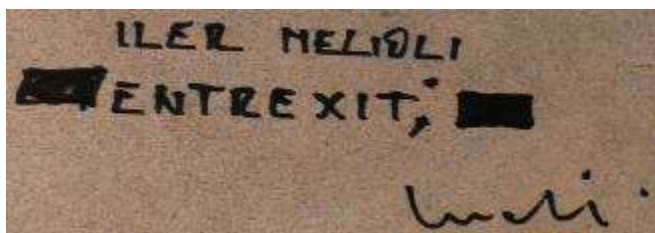 ILER MELIOLI
ENTREXIT;